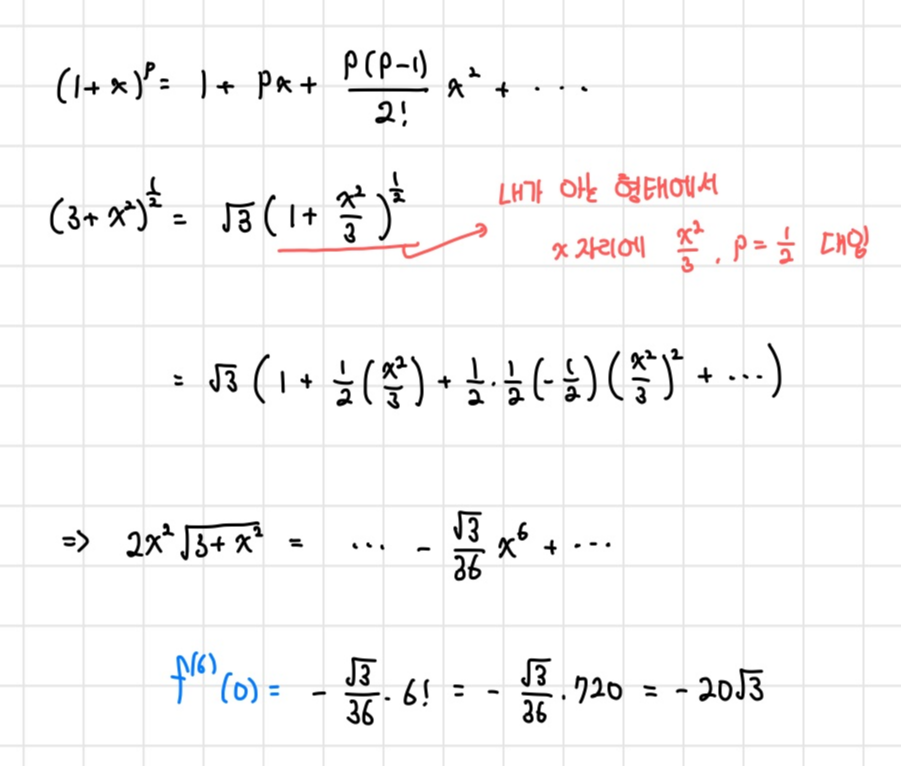 (1+x)^p = 1 + px + \frac{p(p-1)}{2!} x² + ...
(3+x²)^{\frac{1}{2}} = √3 (1 + \frac{x²}{3})^{\frac{1}{2}}
내가 아는 형태에서
x 자리에 \frac{x²}{3}, p = \frac{1}{2} 대입
= √3 (1 + \frac{1}{2}(\frac{x²}{3}) + \frac{1}{2}·\frac{1}{2}(-\frac{1}{2})(\frac{x²}{3})² + ...)
=> 2x²√(3+x²) = ... - \frac{√3}{36} x⁶ + ...
f^{(6)}(0) = - \frac{√3}{36}·6! = - \frac{√3}{36}·720 = -20√3